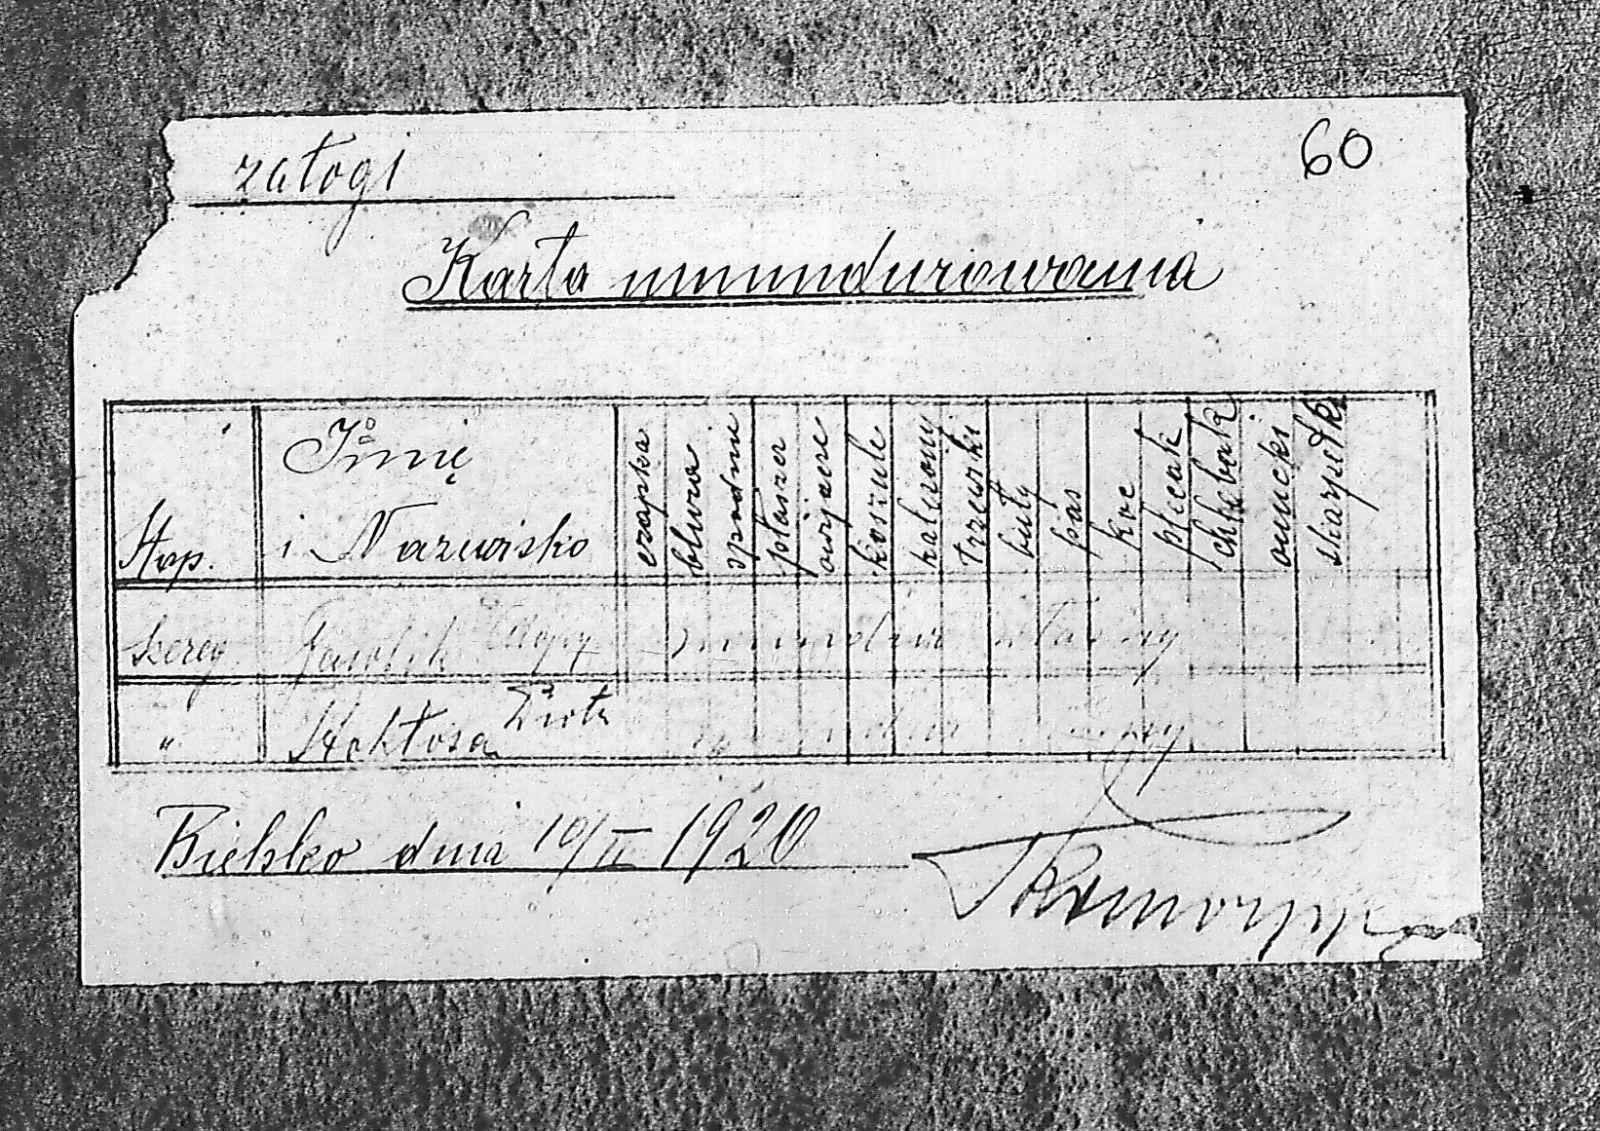 załogi
60
Karta umundurowania
Stop.
Imię
i Nazwisko
czapka
bluza
spodnie
płaszcz
owijacze
koszule
kalesony
trzewiki
buty
pas
koc
plecak
chlebak
onucki
skarpetki
szereg. Gawlik mundur własny
" Stokłosa Piotr
Bielsko dnia 10/II 1920